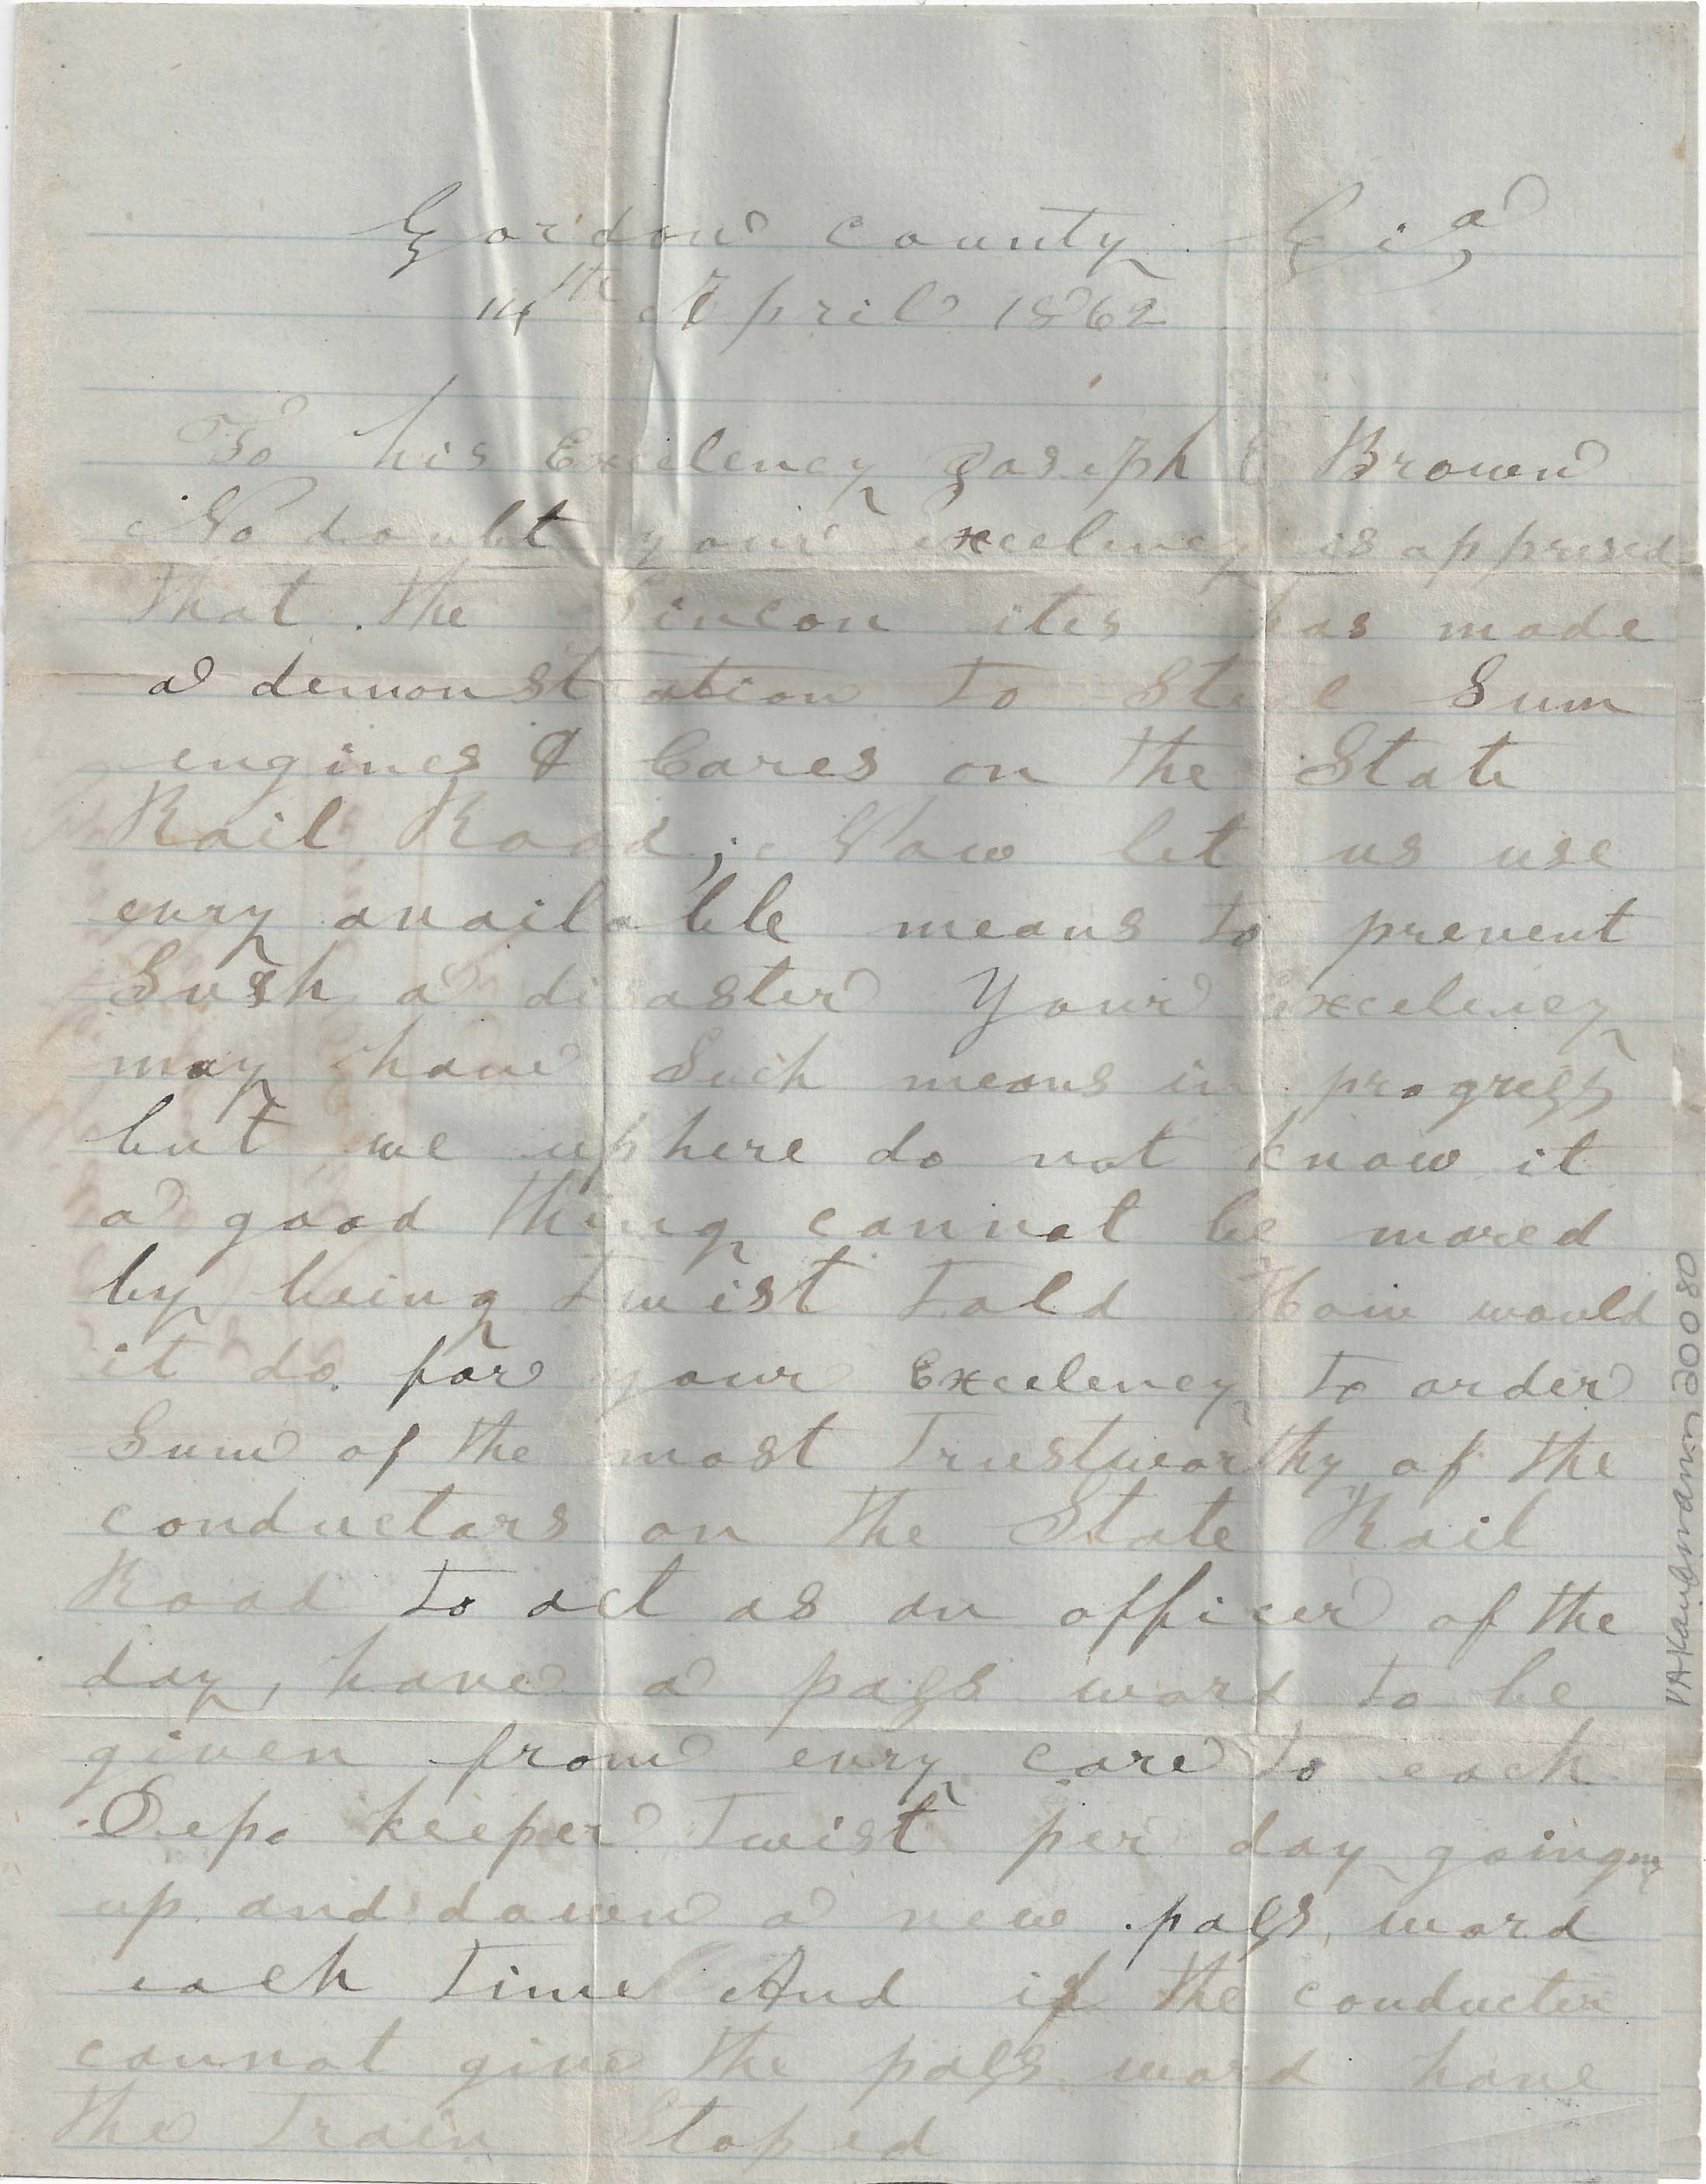 Gordon County Gia
14th April 1862
To his Excelency Joseph E Brown
No doubt your excelency is apprised
that the Lincon ites has made
a demonstration to Stele Sum
engines & Cares on the State
Rail Road; Now let us use
evry available means to prevent
Sush a disaster Your Excelency
may have Such means in progress
but we up here do not know it
a good thing cannot be mared
by being twist told How would
it do for your Excelency to order
Sum of the most Trustworthy of the
conductors on the State Rail
Road to act as an officer of the
day, have a pass word to be
given from evry care to each
Depo keeper Twist per day going
up and down a new pass word
each Time And if the conducter
cannot give the pass word have
the Train Stoped
VAKaufmann200 80